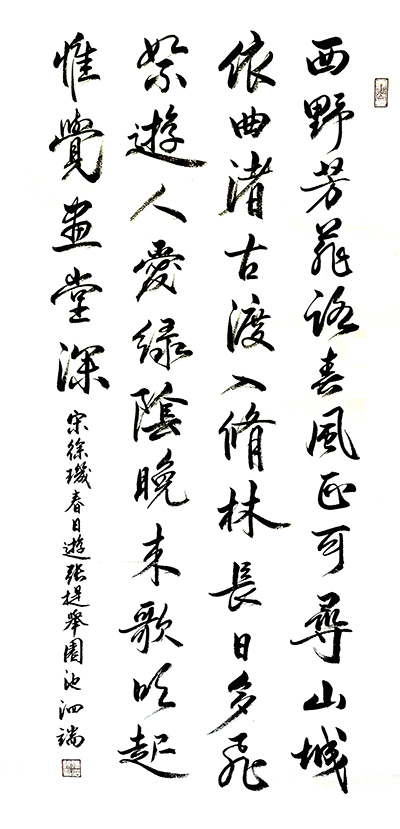 西野芳菲路春風正可尋山城
依曲渚古渡入脩林長日多飛
絮遊人愛綠陰晚来歌吹起
惟覺畫堂深
宋徐璣春日遊張提舉園池泗端